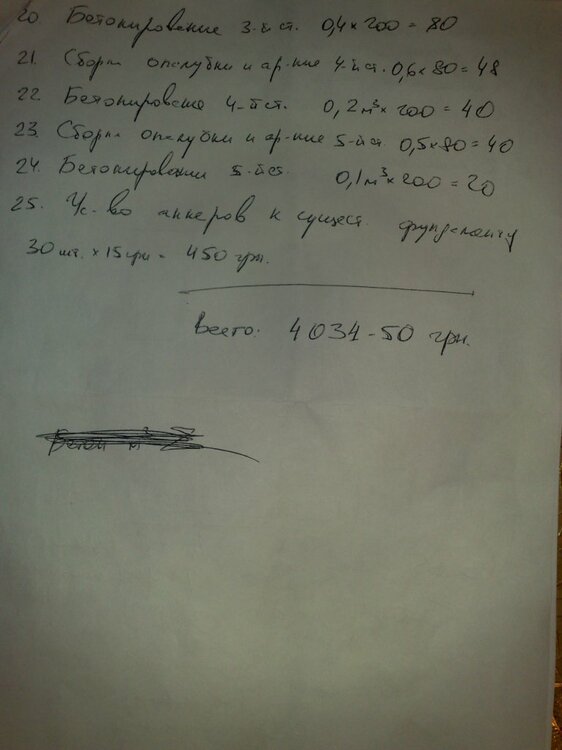 20. Бетонирование 3-й ст. 0,4 x 200 = 80
21. Сборка опалубки и ар-ние 4-й ст. 0,6 x 80 = 48
22. Бетонирование 4-й ст. 0,2 м³ x 200 = 40
23. Сборка опалубки и ар-ние 5-й ст 0,5 x 80 = 40
24. Бетонировании 5-й ст. 0,1 м³ x 200 = 20
25. Ус-во анкеров к сущест. фундаменту
30 шт. x 15 грн = 450 грн.
Всего: 4034-50 грн.